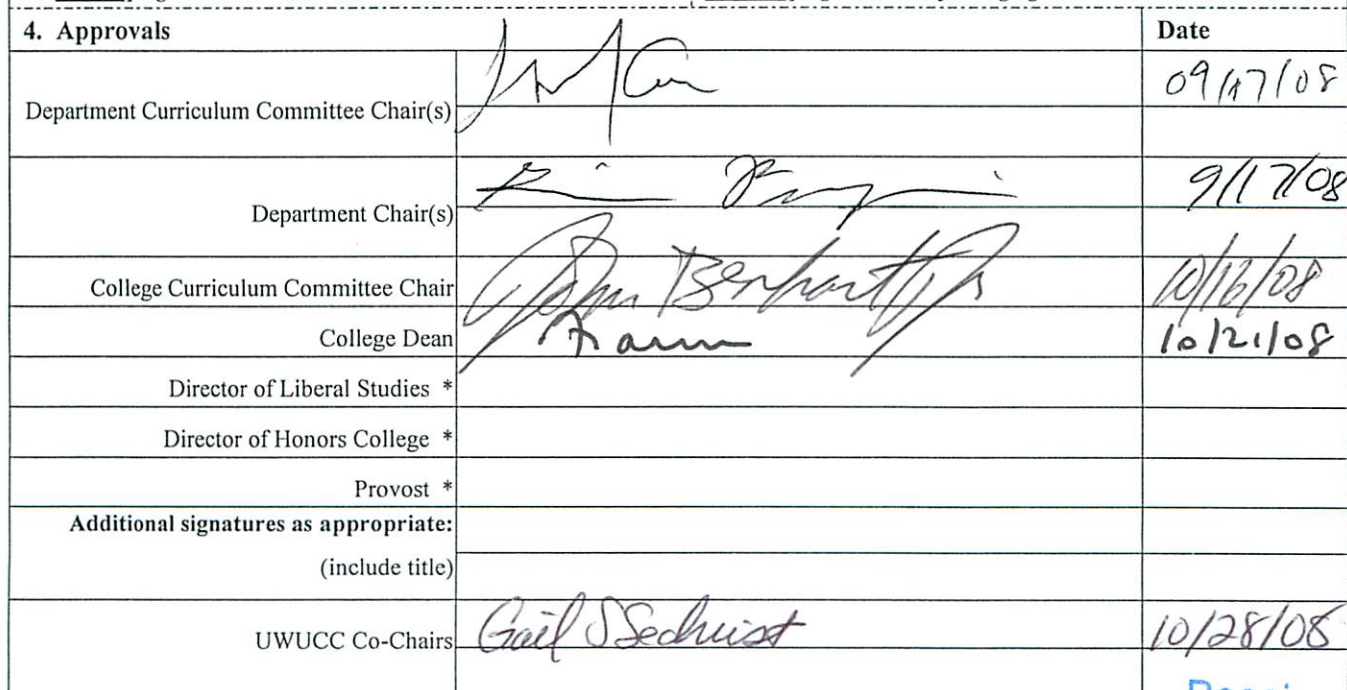 4. Approvals Date
Department Curriculum Committee Chair(s) 09/17/08
Department Chair(s) 9/17/08
College Curriculum Committee Chair John Benhart Jr 10/16/08
College Dean 10/21/08
Director of Liberal Studies *
Director of Honors College *
Provost *
Additional signatures as appropriate:
(include title)
UWUCC Co-Chairs Gail S Sechrist 10/28/08